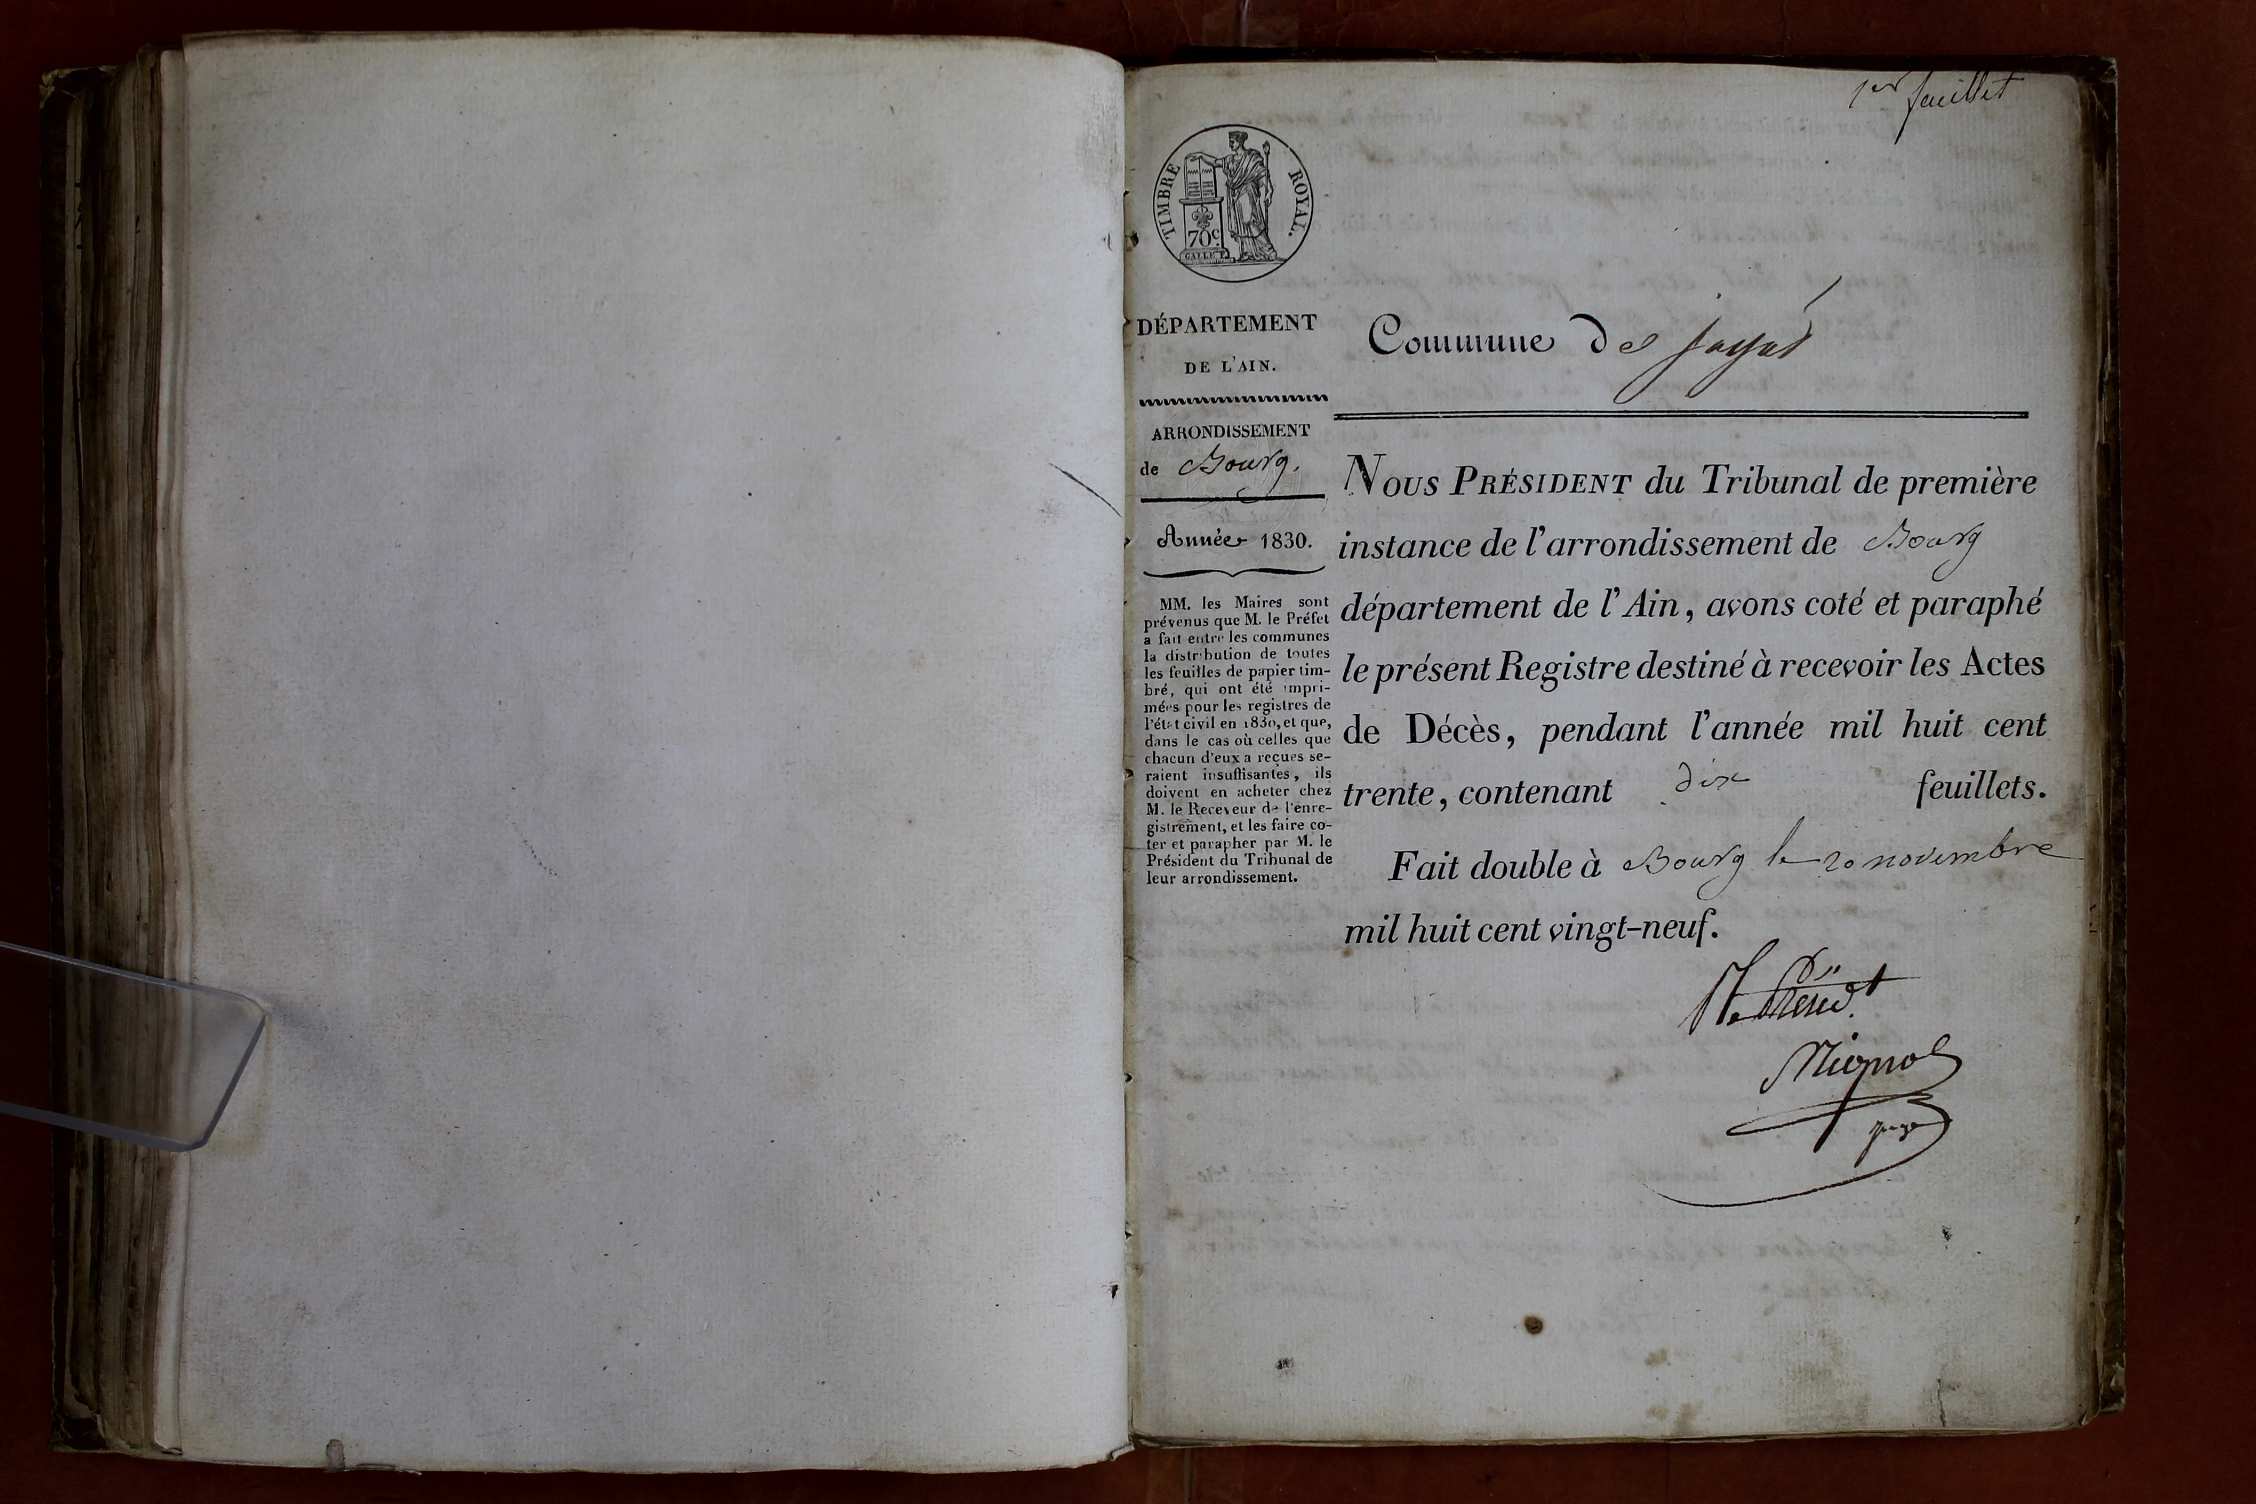 1er feuillet
TIMBRE ROYAL.
70 c.
GALLE F.
DÉPARTEMENT
DE L'AIN.
ARRONDISSEMENT
de Bourg.
Année 1830.
MM. les Maires sont
prévenus que M. le Préfet
a fait entre les communes
la distribution de toutes
les feuilles de papier tim-
bré, qui ont été impri-
mées pour les registres de
l'état civil en 1830, et que,
dans le cas où celles que
chacun d'eux a reçues se-
raient insuffisantes, ils
doivent en acheter chez
M. le Receveur de l'enre-
gistrement, et les faire co-
ter et parapher par M. le
Président du Tribunal de
leur arrondissement.
Commune de Jayat
NOUS PRÉSIDENT du Tribunal de première
instance de l'arrondissement de Bourg
département de l'Ain, avons coté et paraphé
le présent Registre destiné à recevoir les Actes
de Décès, pendant l'année mil huit cent
trente, contenant dix feuillets.
Fait double à Bourg le 20 novembre
mil huit cent vingt-neuf.
juge